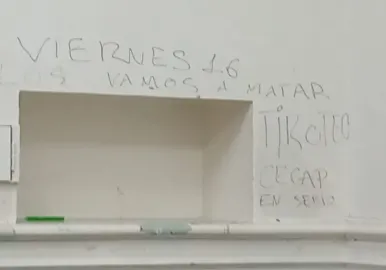 VIERNES 16
LOS VAMOS A MATAR
TIKOTEC
CECAP
EN SERIO